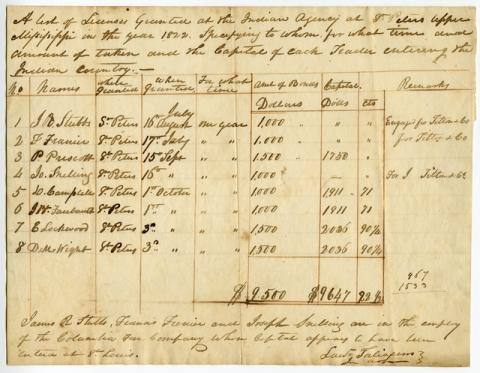 A list of Licenses Granted at the Indian Agency at St. Peters Upper
Mississippi in the year 1822. Specifying to whom, for what time and
amount of taken and the Capital of each Trader entering the
Indian Country.
No Names where granted When Granted For what time Amt of Bonds Capital Remarks
Dollars Dolls Cts
1 St Peters 16th July August one year 1,000 " "
2 F Frenier St Peters 17th July " " 1,000 " " for Tilton & Co
3 P Prescott St Peters 15 Sept " " 1,500 1750
4 Jo. Snelling St Peters 16th " " " 1,000 — " For Tilton & Co
5 D. Campbell St Peters 1st October " " 1,000 1911 71
6 Faribault St Peters 1st " " " 1,000 1911 71
7 E Lockwood St Peters 3d " " " 1,500 2036 90¼
8 St Peters 3d " " " 1,500 2036 90¼
$ 9,500 $9647
967
1533
James R Stubbs, Francis Frenier and Joseph Snelling are in the employ
of the Columbia Fur Company whose Capital appears to have been
enterd at St Louis.